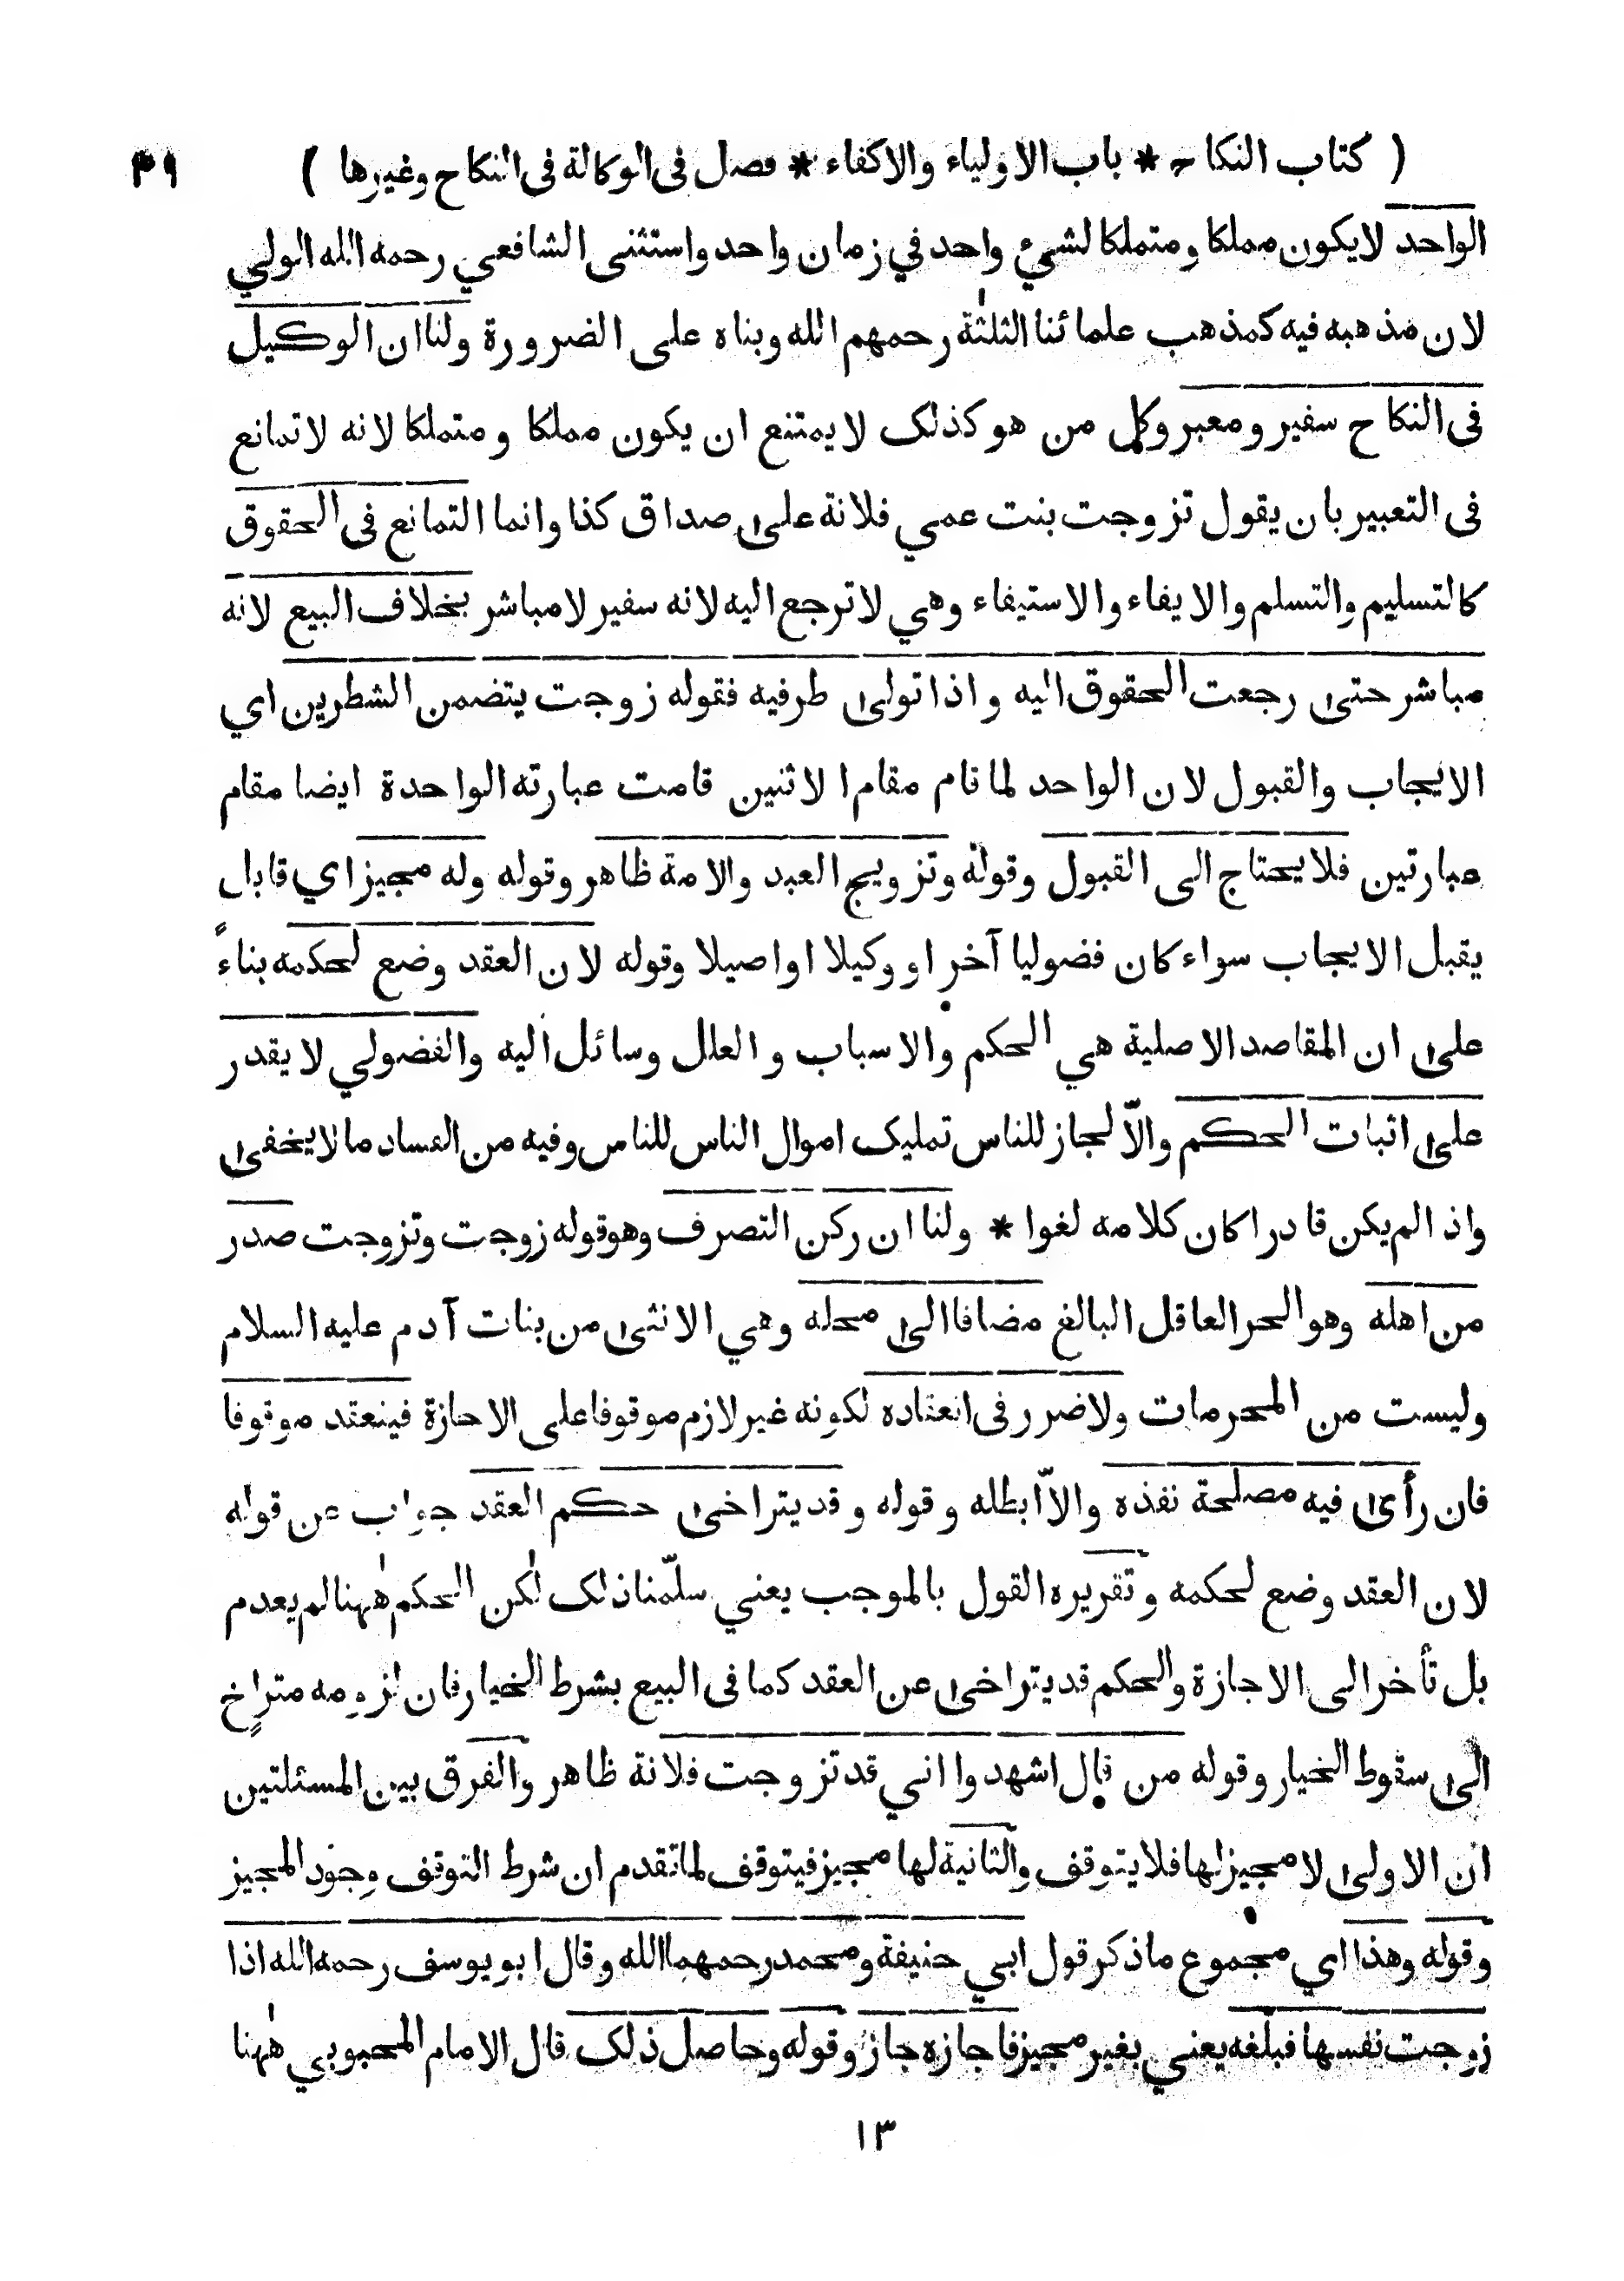 ( كتاب النكاح * باب الاولياء والاكفاء * فصل فى الوكالة فى النكاح وغيرها ) ٤٩
الواحد لايكون مملكا ومتملكا لشيء واحد في زمان واحد واستثنى الشافعي رحمه الله الولي
لان مذهبه فيه كمذهب علمائنا الثلٰثة رحمهم الله وبناه على الضرورة ولنا ان الوكيل
فى النكاح سفير ومعبر وكل من هو كذلك لايمتنع ان يكون مملكا ومتملكا لانه لا تمانع
فى التعبير بان يقول تزوجت بنت عمي فلانة على صداق كذا وانما التمانع فى الحقوق
كالتسليم والتسلم والايفاء والاستيفاء وهي لاترجع اليه لانه سفير لا مباشر بخلاف البيع لانه
مباشر حتى رجعت الحقوق اليه واذا تولى طرفيه فقوله زوجت يتضمن الشطرين اي
الايجاب والقبول لان الواحد لما قام مقام الاثنين قامت عبارته الواحدة ايضا مقام
عبارتين فلا يحتاج الى القبول وقوله وتزويج العبد والامة ظاهر وقوله وله مجيز اي قابل
يقبل الايجاب سواء كان فضوليا آخر او وكيلا او اصيلا وقوله لان العقد وضع لحكمه بناءً
على ان المقاصد الاصلية هي الحكم والاسباب والعلل وسائل اليه والفضولي لا يقدر
على اثبات الحكم والاّ لجاز للناس تمليك اموال الناس للناس وفيه من الفساد ما لا يخفى
واذا لم يكن قادرا كان كلامه لغوا * ولنا ان ركن التصرف وهو قوله زوجت وتزوجت صدر
من اهله وهو الحر العاقل البالغ مضافا الى محله وهي الانثى من بنات آدم عليه السلام
وليست من المحرمات ولا ضرر فى انعقاده لكونه غير لازم موقوفا على الاجازة فينعقد موقوفا
فان رأى فيه مصلحة نفذه والاّ ابطله وقوله وقد يتراخى حكم العقد جواب عن قوله
لان العقد وضع لحكمه وتقريره القول بالموجب يعني سلّمنا ذلك لٰكن الحكم هٰهنا لم يعدم
بل تأخر الى الاجازة والحكم قد يتراخى عن العقد كما فى البيع بشرط الخيار فان لزومه متراخٍ
الى سقوط الخيار وقوله من قال اشهدوا اني قد تزوجت فلانة ظاهر والفرق بين المسئلتين
ان الاولى لا مجيز لها فلا يتوقف والثانية لها مجيز فيتوقف لما تقدم ان شرط التوقف وجود المجيز
وقوله وهذا اي مجموع ما ذكر قول ابي حنيفة ومحمد رحمهما الله وقال ابو يوسف رحمه الله اذا
زوجت نفسها فبلغه يعني بغير مجيز فاجازه جاز وقوله وحاصل ذلك قال الامام المحبوبي هٰهنا
١٣